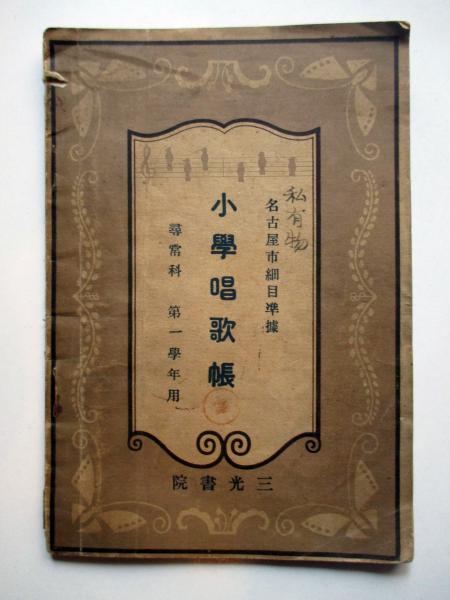 私有物
名古屋市細目準據
小學唱歌帳
尋常科 第一學年用
三光書院